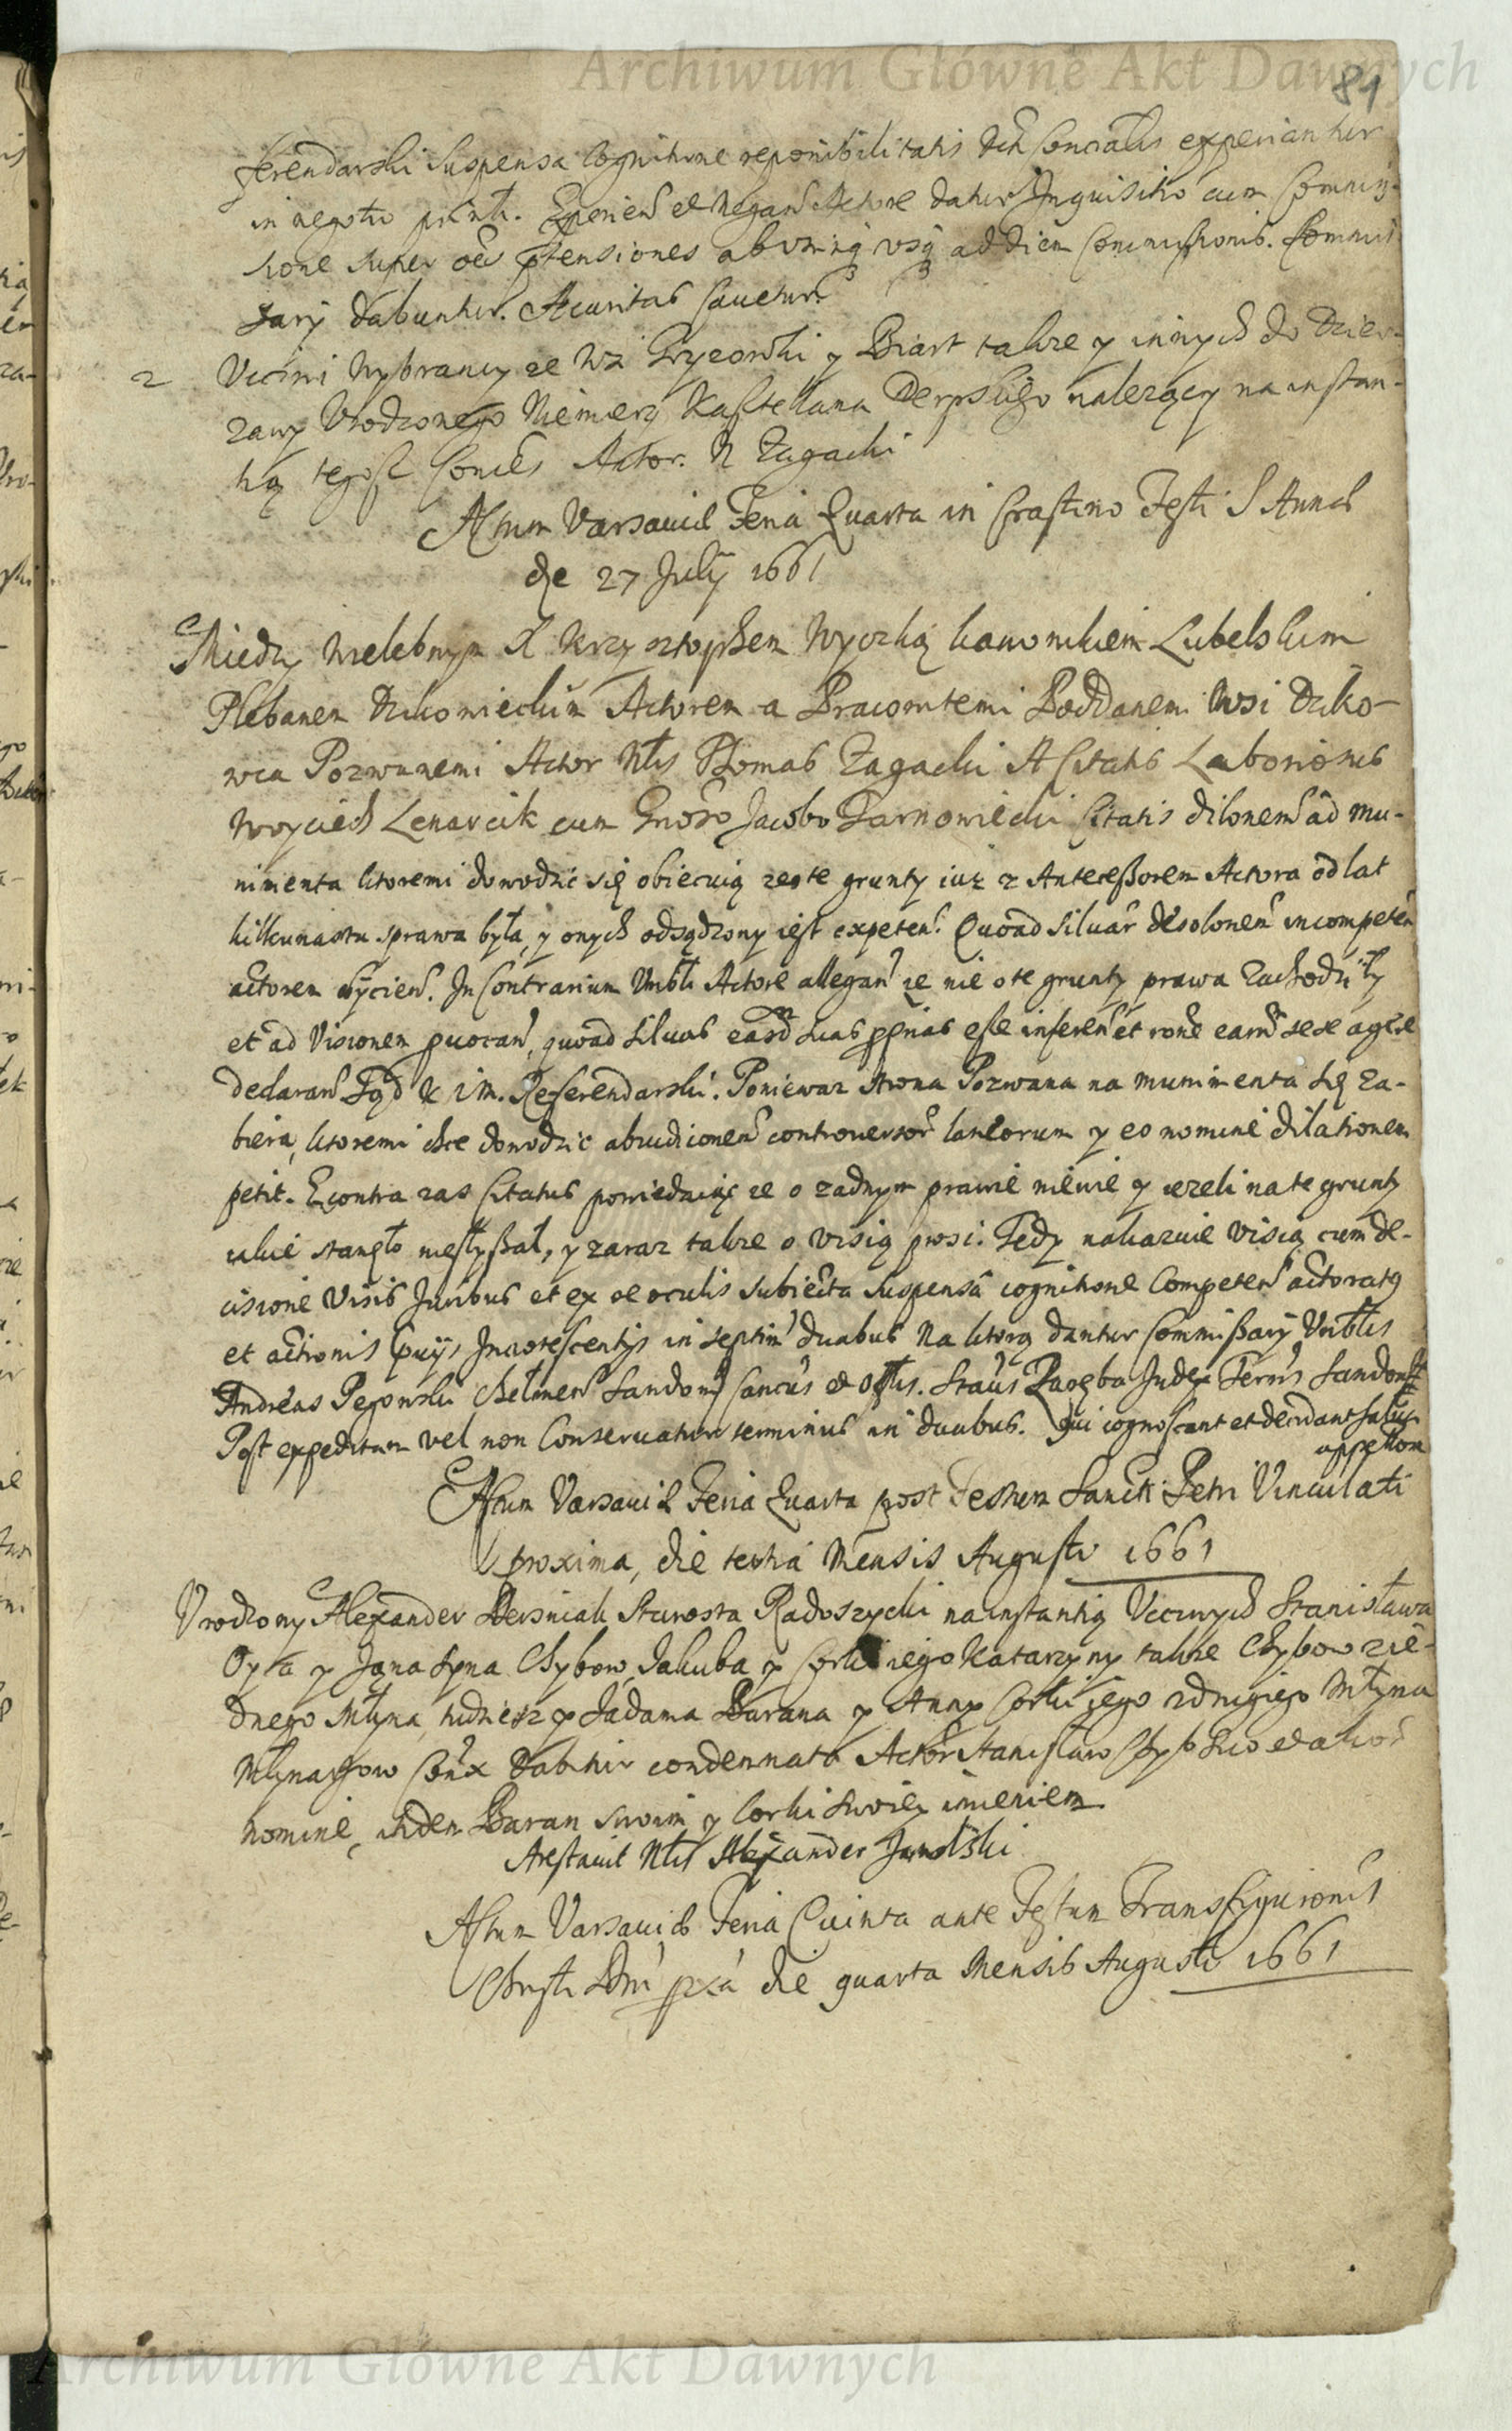 Archiwum Główne Akt Dawnych
81
ferendarski suspensa cognitione reponibilitatis experiantur
in negotio Actore datur Inquisitio cum Commis-
sione super pretensiones ad diem Commissionis. Commis
sarij dabuntur. cavetur.
2 Uccini Wybrancy ze Wsi y Biart takze y innych do Dzier-
zawy Urodzonego Niemierz Kasztellana Derpskiego nalezący na instan-
tią tegosz Actor. N Zagacki
Actum Varsaviæ Feria Quarta in Crastino Festi S Annæ
die 27 July 1661
Miedzy Wielebnym X Krzysztophem Wyczką kanonikiem Lubelskim
Plebanem Dzikowieckim Actorem a Pracowitemi Poddanemi Wsi Dziko-
wca Pozwanemi Actor Nlis Thomas Zagacki A Citatis Laboriosus
Woyciech Lenarcik cum Gnoso Jacobo Tarnowiecki Citatis dilonem ad mu-
nimenta ktoremi dowodzic się obiecuią ze o te grunty iuz z Antecessorem Actora od lat
kilkunastu sprawa była, y onych odsądzony iest expeten. Quoad siluar desolonem incompeten
actorem In Contrarium Actore allegan ze nie o te grunty prawa zachodziły
et ad Visionem quoad siluas suas esse inferen et rone earum sese agere
declaran Sąd K i M. Referendarski. Poniewaz strona Pozwana na munimenta się za-
biera, ktoremi chce dowodzic abiudicionem controversor laneorum y eo nomine dilationem
petit. E contra zas Citatus powiedaiąc ze o zadnym prawie niewie y iezeli na te grunty
iakie stanęło niesłyszał, y zaraz takze o visią prosi. Tedy nakazuie visią cum de-
cisione Visis Juribus et ex oculis subiecta suspensa cognitione Competen actoratus
et actionis in septim duabus Na ktorą dantur Commissarij
Andreas Pegowski Chelmen Sandom et Judex Terris Sandom
Post expeditum vel non Conservatur terminus in duabus. Qui cognoscant et decidant salva
appellone
Actum Varsaviæ Feria Quarta post Festum Sancti Petri Vinculati
proxima, die tertia Mensis Augusti 1661
Urodzony Alexander Starosta Radoszycki na instantią Uccziwych Stanisława
Oyca y Jana Syna Chybow, Jakuba y Corki iego Katarzyny takze Chybow z ie-
dnego Młyna, tudziesz y Jadama Barana y Anny Corki iego z drugiego Młyna
Młynarzow condemnata Actor Stanisław Chyb suo et alior
nomine, itidem Baran swoim y Corki swoiey imieniem
Arestavit Nlis Alexander
Actum Varsaviæ Feria Quinta ante Festum Transfiguronis
Christi Dni pxa die quarta Mensis Augusti 1661
Archiwum Główne Akt Dawnych